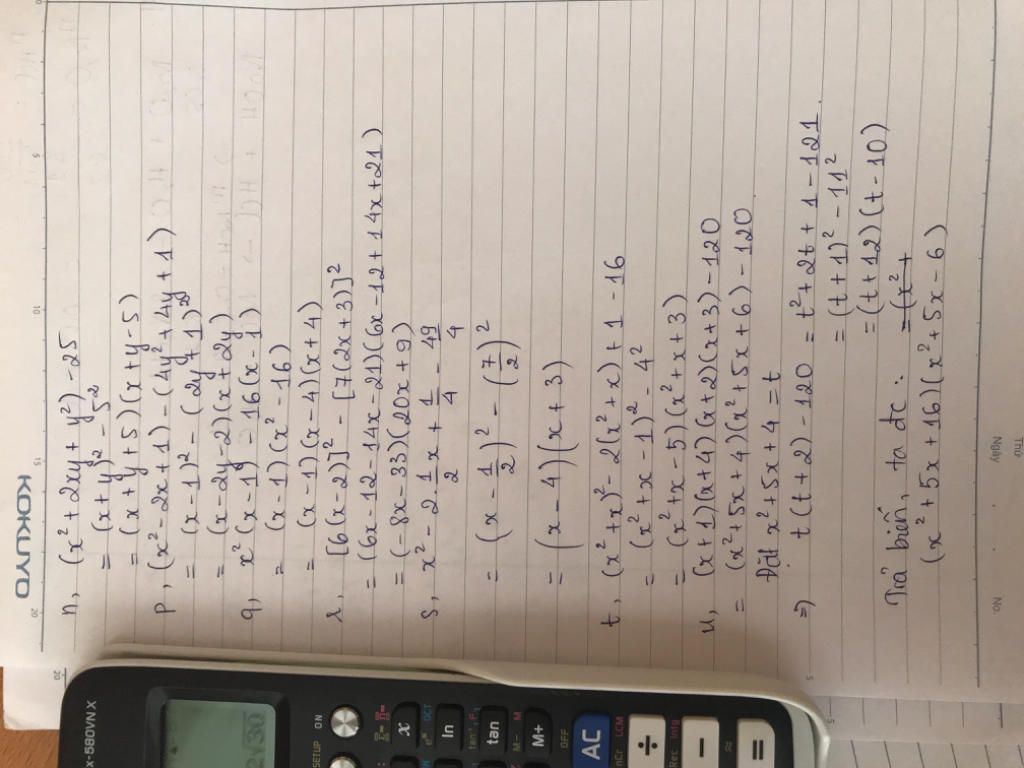 KOKUYO
Thứ
Ngày
No.
n, (x² + 2xy + y²) - 25
= (x + y)² - 5²
= (x + y + 5)(x + y - 5)
p, (x² - 2x + 1) - (4y² + 4y + 1)
= (x - 1)² - (2y + 1)²
= (x - 2y - 2)(x + 2y)
q, x²(x - 1) - 16(x - 1)
= (x - 1)(x² - 16)
= (x - 1)(x - 4)(x + 4)
r, [6(x - 2)]² - [7(2x + 3)]²
= (6x - 12 - 14x - 21)(6x - 12 + 14x + 21)
= (-8x - 33)(20x + 9)
s, x² - 2.1/2 x + 1/4 - 49/4
= (x - 1/2)² - (7/2)²
= (x - 4)(x + 3)
t, (x² + x)² - 2(x² + x) + 1 - 16
= (x² + x - 1)² - 4²
= (x² + x - 5)(x² + x + 3)
u, (x + 1)(x + 4)(x + 2)(x + 3) - 120
= (x² + 5x + 4)(x² + 5x + 6) - 120
Đặt x² + 5x + 4 = t
=> t(t + 2) - 120 = t² + 2t + 1 - 121
= (t + 1)² - 11²
= (t + 12)(t - 10)
Trả biến, ta đc : = (x² +
(x² + 5x + 16)(x² + 5x - 6)
x-580VN X
SETUP
ON
x
ln
tan
M+
OFF
AC
÷
−
=